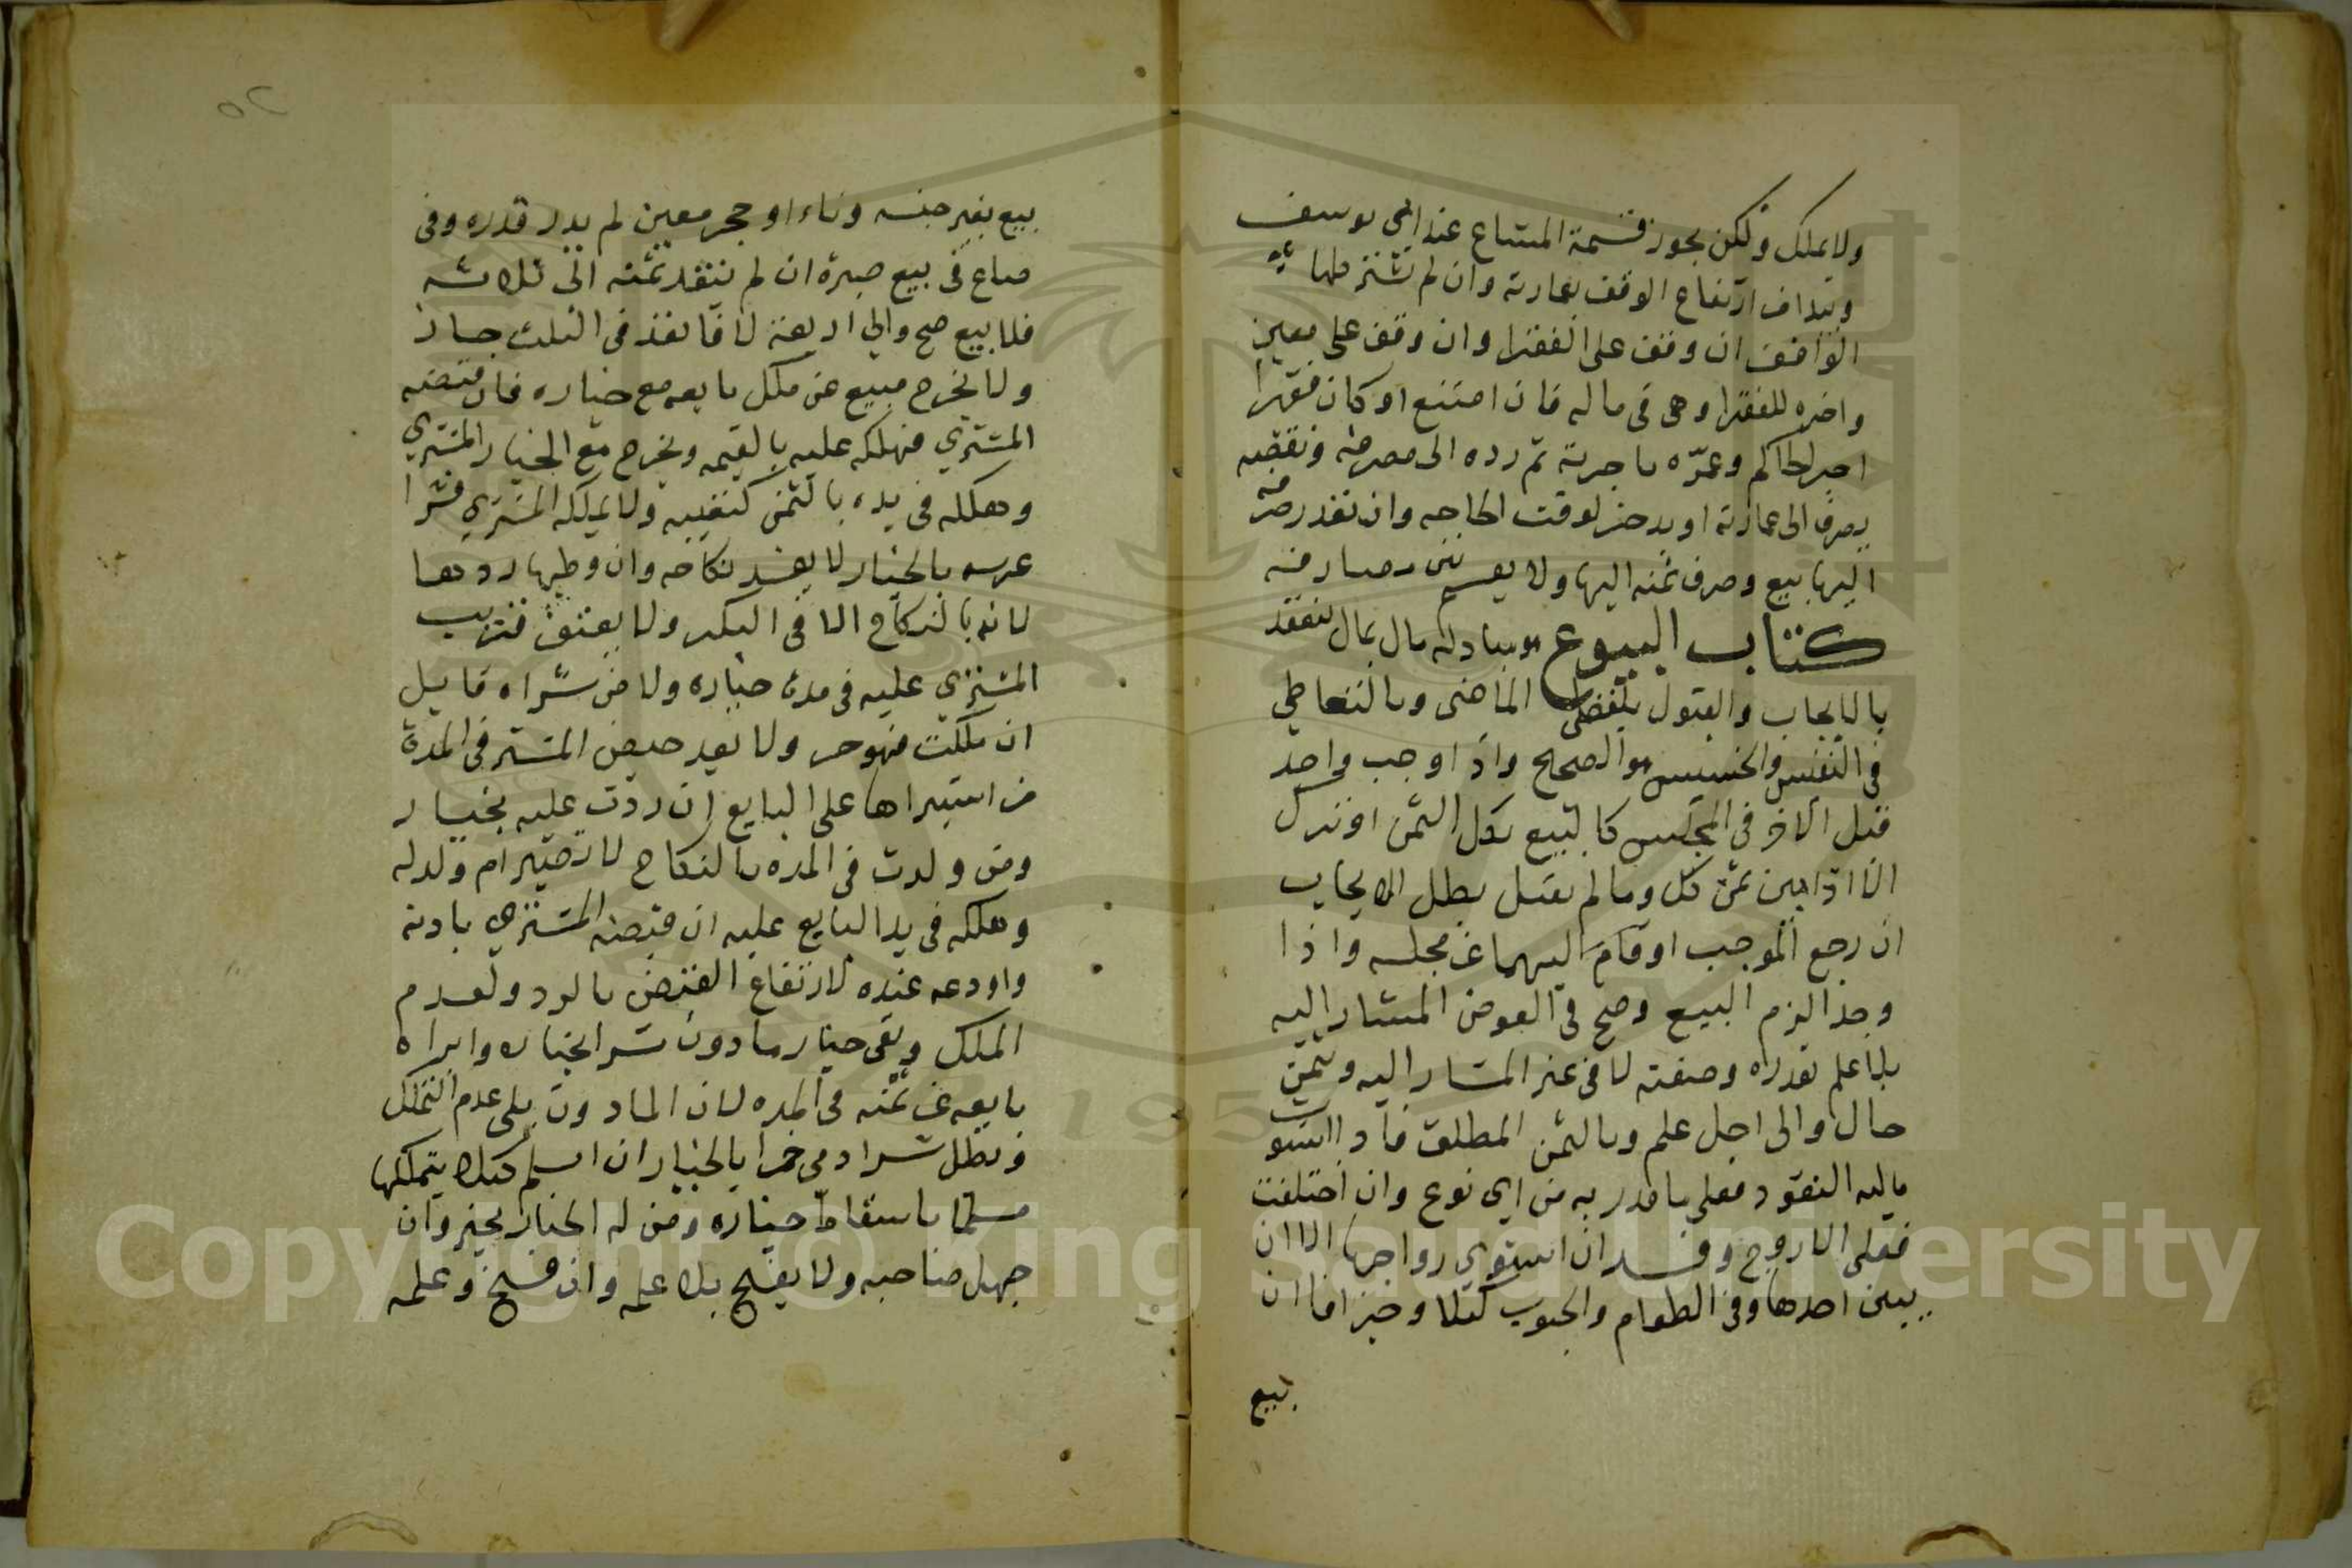 ولا يملك ولكن يجوز قسمة المشاع عند ابي يوسف
ويبدا من ارتفاع الوقف بعمارته وان لم يشترطها
الواقف ان وقف على الفقرا وان وقف على معين
واخره للفقرا وهى فى ماله فان امتنع او كان فقيرا
اجر الحاكم وعمّره باجرته ثم رده الى مصرفه ونقضه
يصرف الى عمارته او يدخر لوقت الحاجه وان تعذر صرفه
اليها بيع وصرف ثمنه اليها ولا يقسم بين مصارفه
كتاب البيوع هو مبادلة مال بمال ينعقد
بالايجاب والقبول بلفظى الماضى وبالتعاطي
فى النفيس والخسيس هو الصحيح واذا اوجب واحد
قبل الاخر فى المجلس كل المبيع بكل الثمن او ترك
الا اذا بين ثمن كل وما لم يقبل بطل الايجاب
ان رجع الموجب او قام ايهما عن مجلسه واذا
وجدا لزم البيع وصح فى العوض المشار اليه
بلا علم بقدره وصفته لا فى غير المشار اليه وبثمن
حال والى اجل علم وبالثمن المطلق فان استوت
ماليه النقود فعلى ما قدر به من اي نوع وان اختلفت
فعلى الاروج وفسد ان استوي رواجها الا ان
يبين احدها وفى الطعام والحبوب كيلا وجزافا ان
بيع
بيع بغير جنسه وباناء او حجر معين لم يدر قدره وفى
صاع فى بيع صبرة ان لم ينقد ثمنه الى ثلاثه
فلا بيع صح والى اربعة لا فان نقد فى الثلث جاز
ولا يخرج مبيع عن ملك بايعه مع خياره فان قبضه
المشتري فهلكه عليه بالقيمه ويخرج مع الخيار المشتري
وهلكه فى يده بالثمن كتعيبه ولا يملكه المشتري فشرا
عرسه بالخيار لا يفسد نكاحه وان وطيها ردها
لانه بالنكاح الا فى البكر ولا يعتق قريب
المشتري عليه فى مدة خياره ولا من شراه قايل
ان ملكت فهو حر ولا يعد حيض المشتراة فى المدة
من استبراها على البايع ان ردت عليه بخيار
ومن ولدت فى المده بالنكاح لا تصير ام ولد له
وهلكه فى يد البايع عليه ان قبضه المشتري باذنه
واودعه عنده لارتفاع القبض بالرد ولعدم
الملك وبقى خيار ماذون شرا بخياره وابراه
بايعه عن ثمنه فى المده لان الماذون يلى عدم التملك
وبطل شرا ذمى خمرا بالخيار ان اسلم كيلا يتملكها
مسلما باسقاط خياره ومن له الخيار يجيز وان
جهل صاحبه ولا يفسخ بلا علمه وان فسخ وعلمه